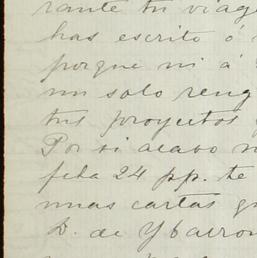 rante tu viaje
has escrito ó
porque ni á
un solo reng
tus proyectos
Por si acaso n
fha 24 pp. te
unas cartas q
D. de Ybarron